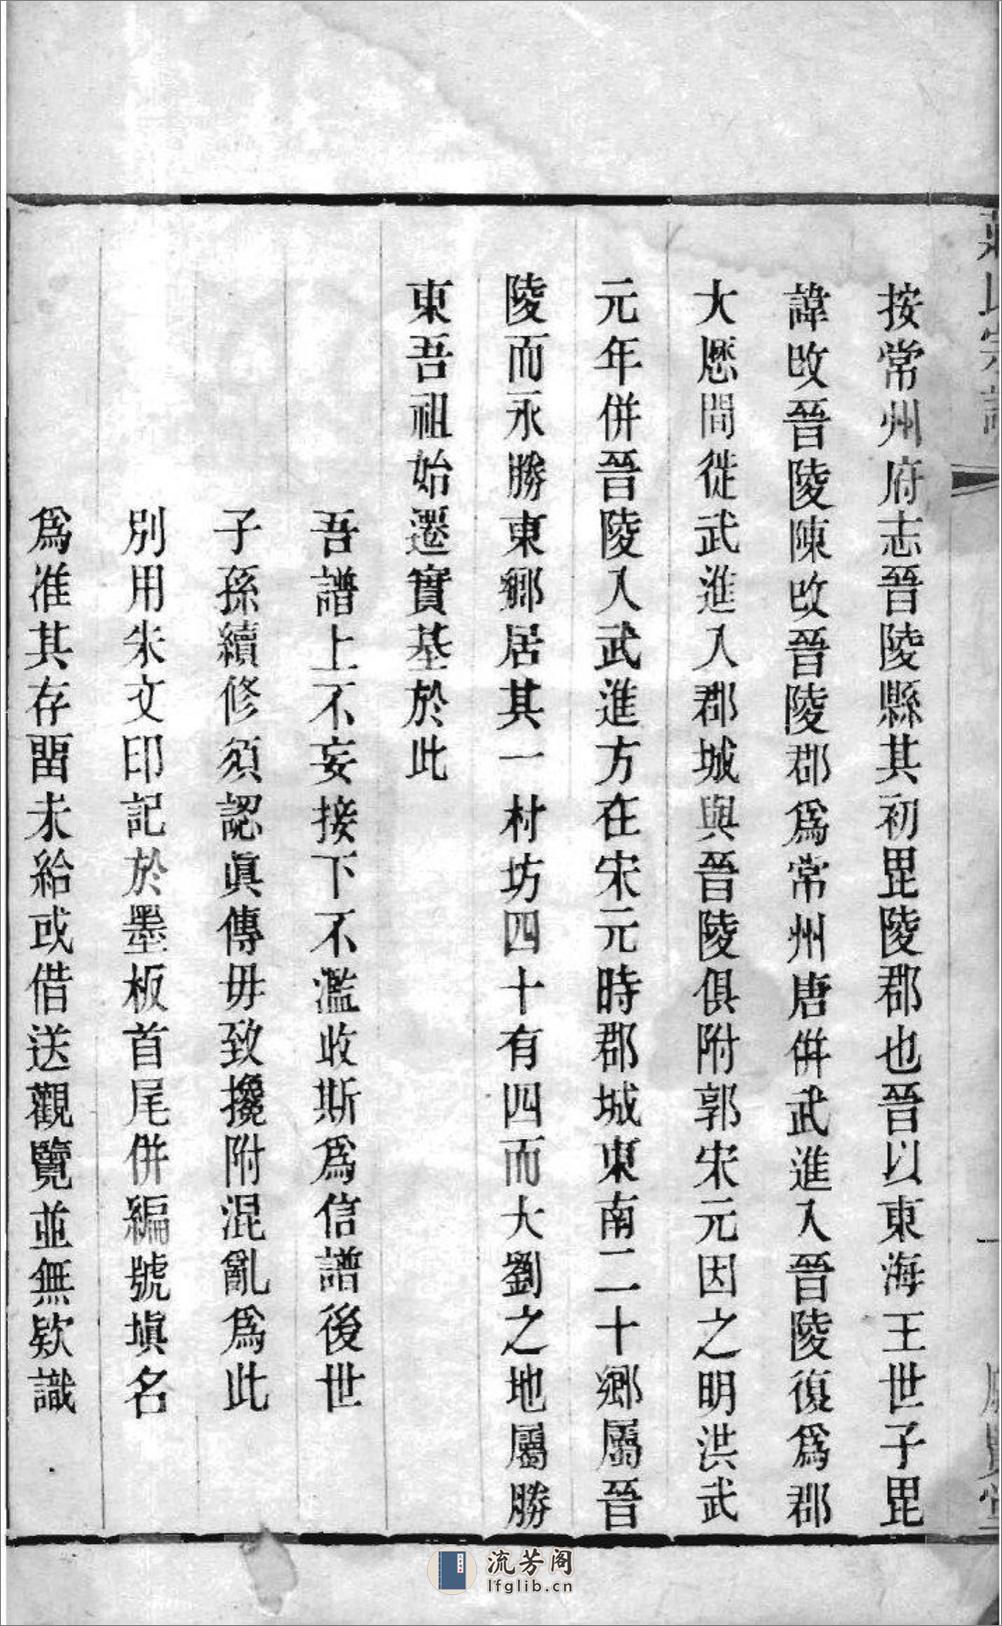 按常州府志晉陵縣其初毘陵郡也晉以東海王世子毘
諱改晉陵陳改晉陵郡爲常州唐併武進入晉陵復爲郡
大厯間從武進入郡城與晉陵俱附郭宋元因之明洪武
元年併晉陵入武進方在宋元時郡城東南二十鄉屬晉
陵而永勝東鄉居其一村坊四十有四而大劉之地屬勝
東吾祖始遷實基於此
吾譜上不妄接下不濫收斯爲信譜後世
子孫續修須認眞傳毋致攙附混亂爲此
別用朱文印記於墨板首尾併編號塡名
爲准其存畱未給或借送觀覽並無欵識
氏宗譜
一
流芳阁
lfglib.cn